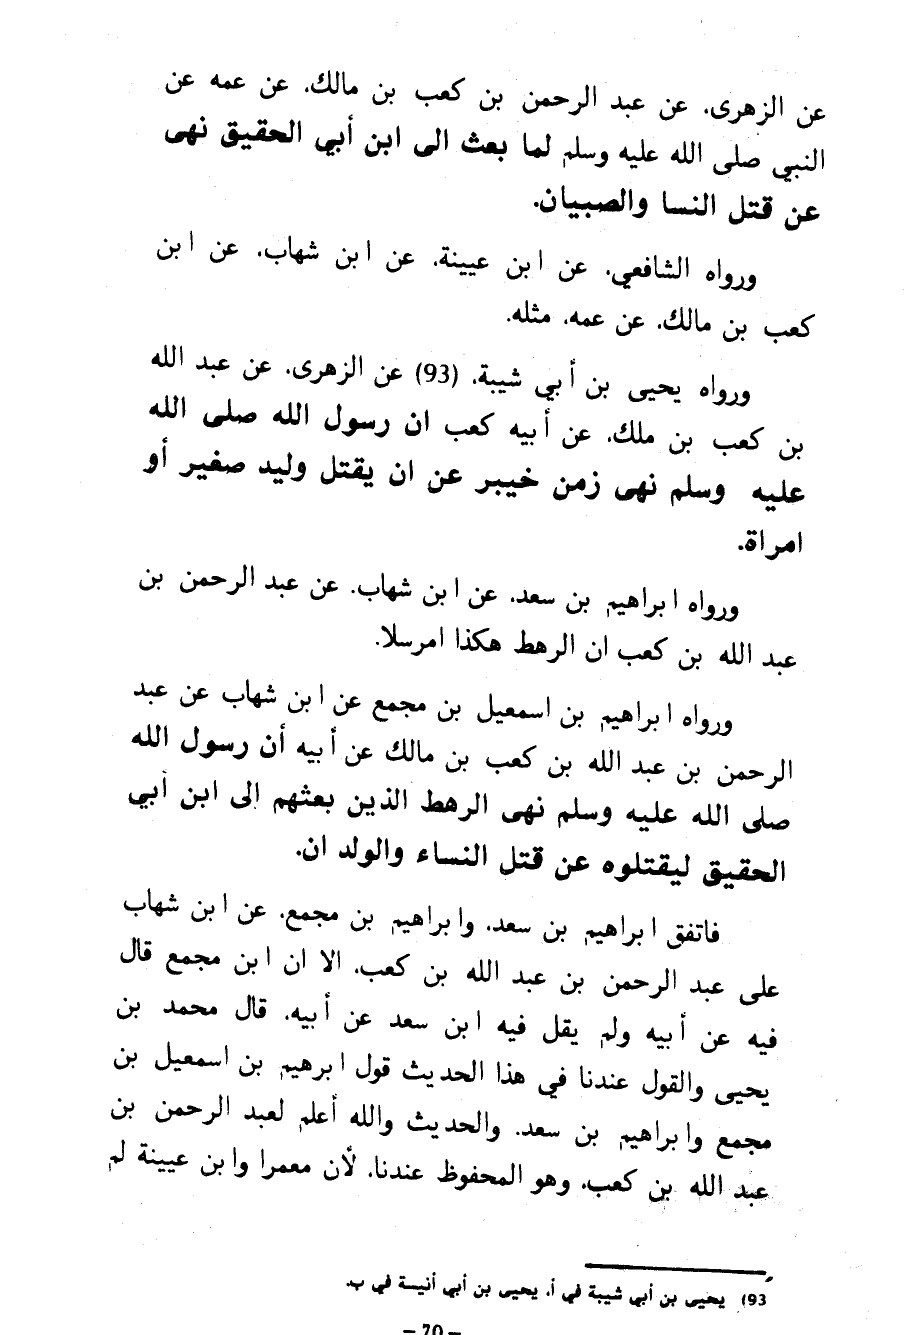 عن الزهرى، عن عبد الرحمن بن كعب بن مالك، عن عمه عن
النبي صلى الله عليه وسلم لما بعث الى ابن أبي الحقيق نهى
عن قتل النسا والصبيان.
ورواه الشافعي، عن ابن عيينة، عن ابن شهاب، عن ابن
كعب بن مالك، عن عمه، مثله.
ورواه يحيى بن أبي شيبة، (93) عن الزهرى، عن عبد الله
بن كعب بن ملك، عن أبيه كعب ان رسول الله صلى الله
عليه وسلم نهى زمن خيبر عن ان يقتل وليد صغير أو
امراة.
ورواه ابراهيم بن سعد، عن ابن شهاب، عن عبد الرحمن بن
عبد الله بن كعب ان الرهط هكذا امرسلا.
ورواه ابراهيم بن اسمعيل بن مجمع عن ابن شهاب عن عبد
الرحمن بن عبد الله بن كعب بن مالك عن أبيه أن رسول الله
صلى الله عليه وسلم نهى الرهط الذين بعثهم إلى ابن أبي
الحقيق ليقتلوه عن قتل النساء والولدان.
فاتفق ابراهيم بن سعد، وابراهيم بن مجمع، عن ابن شهاب
على عبد الرحمن بن عبد الله بن كعب، الا ان ابن مجمع قال
فيه عن أبيه ولم يقل فيه ابن سعد عن أبيه، قال محمد بن
يحيى والقول عندنا في هذا الحديث قول ابرهيم بن اسمعيل بن
مجمع وابراهيم بن سعد، والحديث والله أعلم لعبد الرحمن بن
عبد الله بن كعب، وهو المحفوظ عندنا، لأن معمرا وابن عيينة لم
93) يحيى بن أبي شيبة في أ، يحيى بن أبي أنيسة في ب.
– 70 –